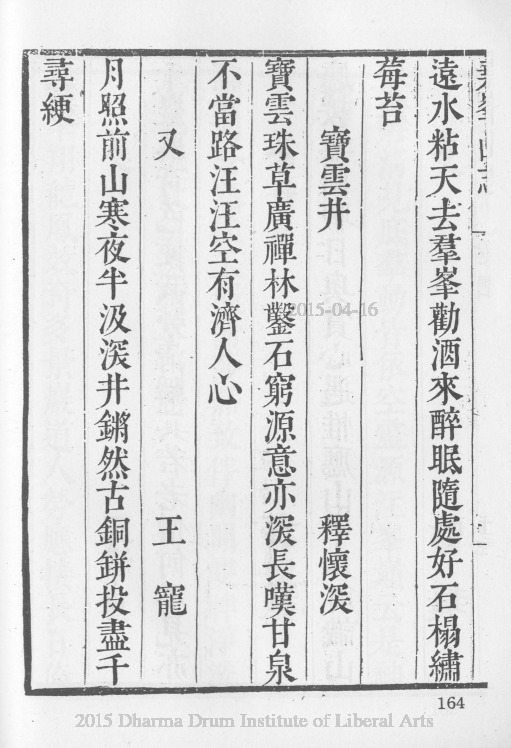 遠水粘天去羣峯勸酒來醉眠隨處好石榻繡
莓苔
寶雲井 釋懷深
寶雲珠草廣禪林鑿石窮源意亦深長嘆甘泉
不當路汪汪空有濟人心
又 王寵
月照前山寒夜半汲深井鏘然古銅缾投盡千
尋綆
2015-04-16
164
2015 Dharma Drum Institute of Liberal Arts